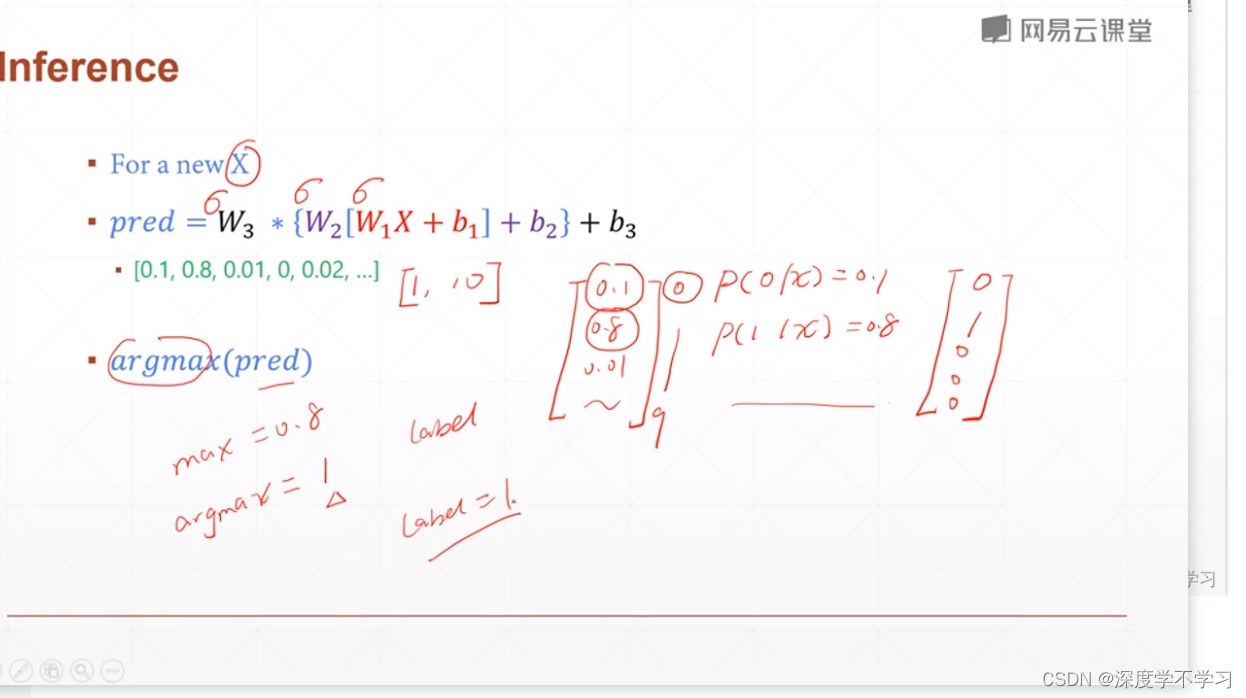 网易云课堂
Inference
▪ For a new X
σ σ σ
▪ pred = W₃ * {W₂[W₁X + b₁] + b₂} + b₃
▪ [0.1, 0.8, 0.01, 0, 0.02, ...]
[1, , 10]
0.1
0.8
0.01
~
0
1
9
P(0/x) = 0.1
P(1/x) = 0.8
0
1
0
0
0
▪ argmax(pred)
max = 0.8
argmax = 1
label
label = 1.
学习
CSDN @深度学不学习